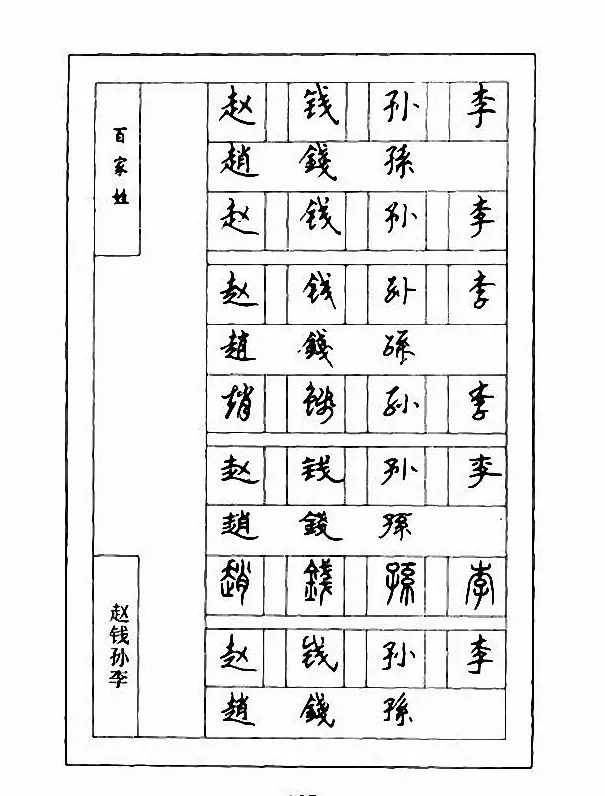 百家姓
赵 钱 孙 李
趙 錢 孫
赵 钱 孙 李
赵 钱 孙 李
趙 錢 孫
趙 錢 孙 李
赵 钱 孙 李
趙 錢 孫
趙 錢 孫 李
赵 钱 孙 李
趙 錢 孫
赵钱孙李